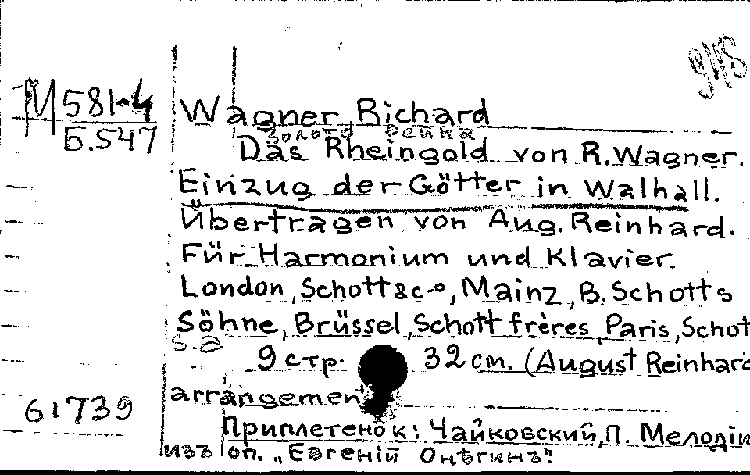 М 581-4
Б.547
Wagner Richard
Золото Рейна
Das Rheingold von R.Wagner.
Einzug der Götter in Walhall.
Übertragen von Aug. Reinhard.
Für Harmonium und Klavier.
London, Schott & c-o, Mainz, B. Schotts
Söhne, Brüssel, Schott frères, Paris, Schot
s. a
9 стр. 32 cm. (August Reinhard
arrangement
61739
Приплетенок: Чайковский, П. Мелодіи
изъ оп. „Евгеній Онѣгинъ"